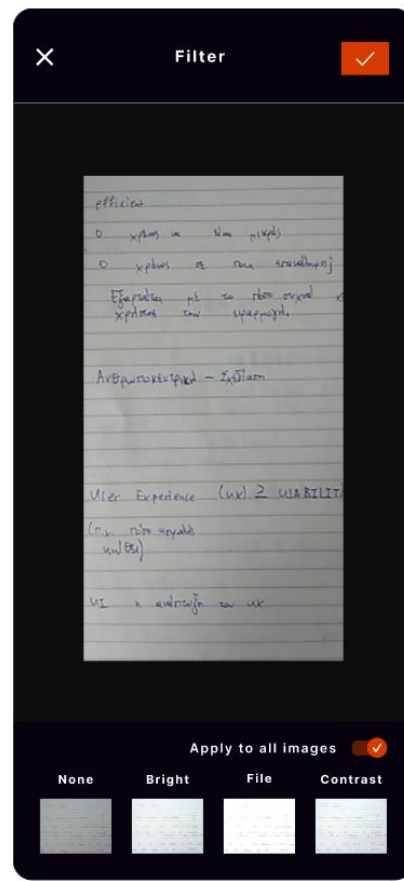 Filter
efficient
Ο χρόνος να είναι μικρός
Ο χρόνος σε
Εξαρτάται με το πόσο συχνά
χρήστης την εφαρμογή.
Ανθρωποκεντρική – Σχεδίαση
User Experience (UX) ≥ USABILIT
(π.χ. πόσο
UI η ανάπτυξη του UX
Apply to all images
None Bright File Contrast